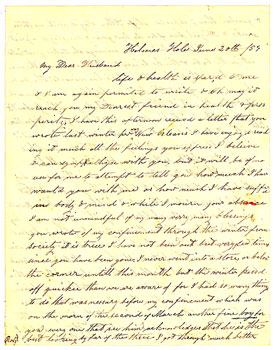 Holmes Hole June 20th /59
My Dear Husband
Life & health is spared to me
& I am again permitted to write & Oh may it
reach you my dearest friend in health & pros
perity, I have this afternoon received a letter that you
wrote last winter from New Orleans I have enjoyed read
ing it much all the feelings you express I believe
& can sympathize with you, but it will be of no
use for me to attempt to tell you how much I have
wanted your with me or how much I have suff
in body & mind & while I mourn your absence
I am not unmindful of my many very many blessings
you wrote of my confinement through the winter from
society it is true I have not been out but very few times
since you have been gone, I never went into a store, or below
the corner untill this month but this winter passed
off quicker than we are aware of for I had so many things
to do that was necessary before my confinement which was
on the morn of the second of March another fine boy for
you every one that sees him acknowledges that he is the
best looking by far of the three I got through much better